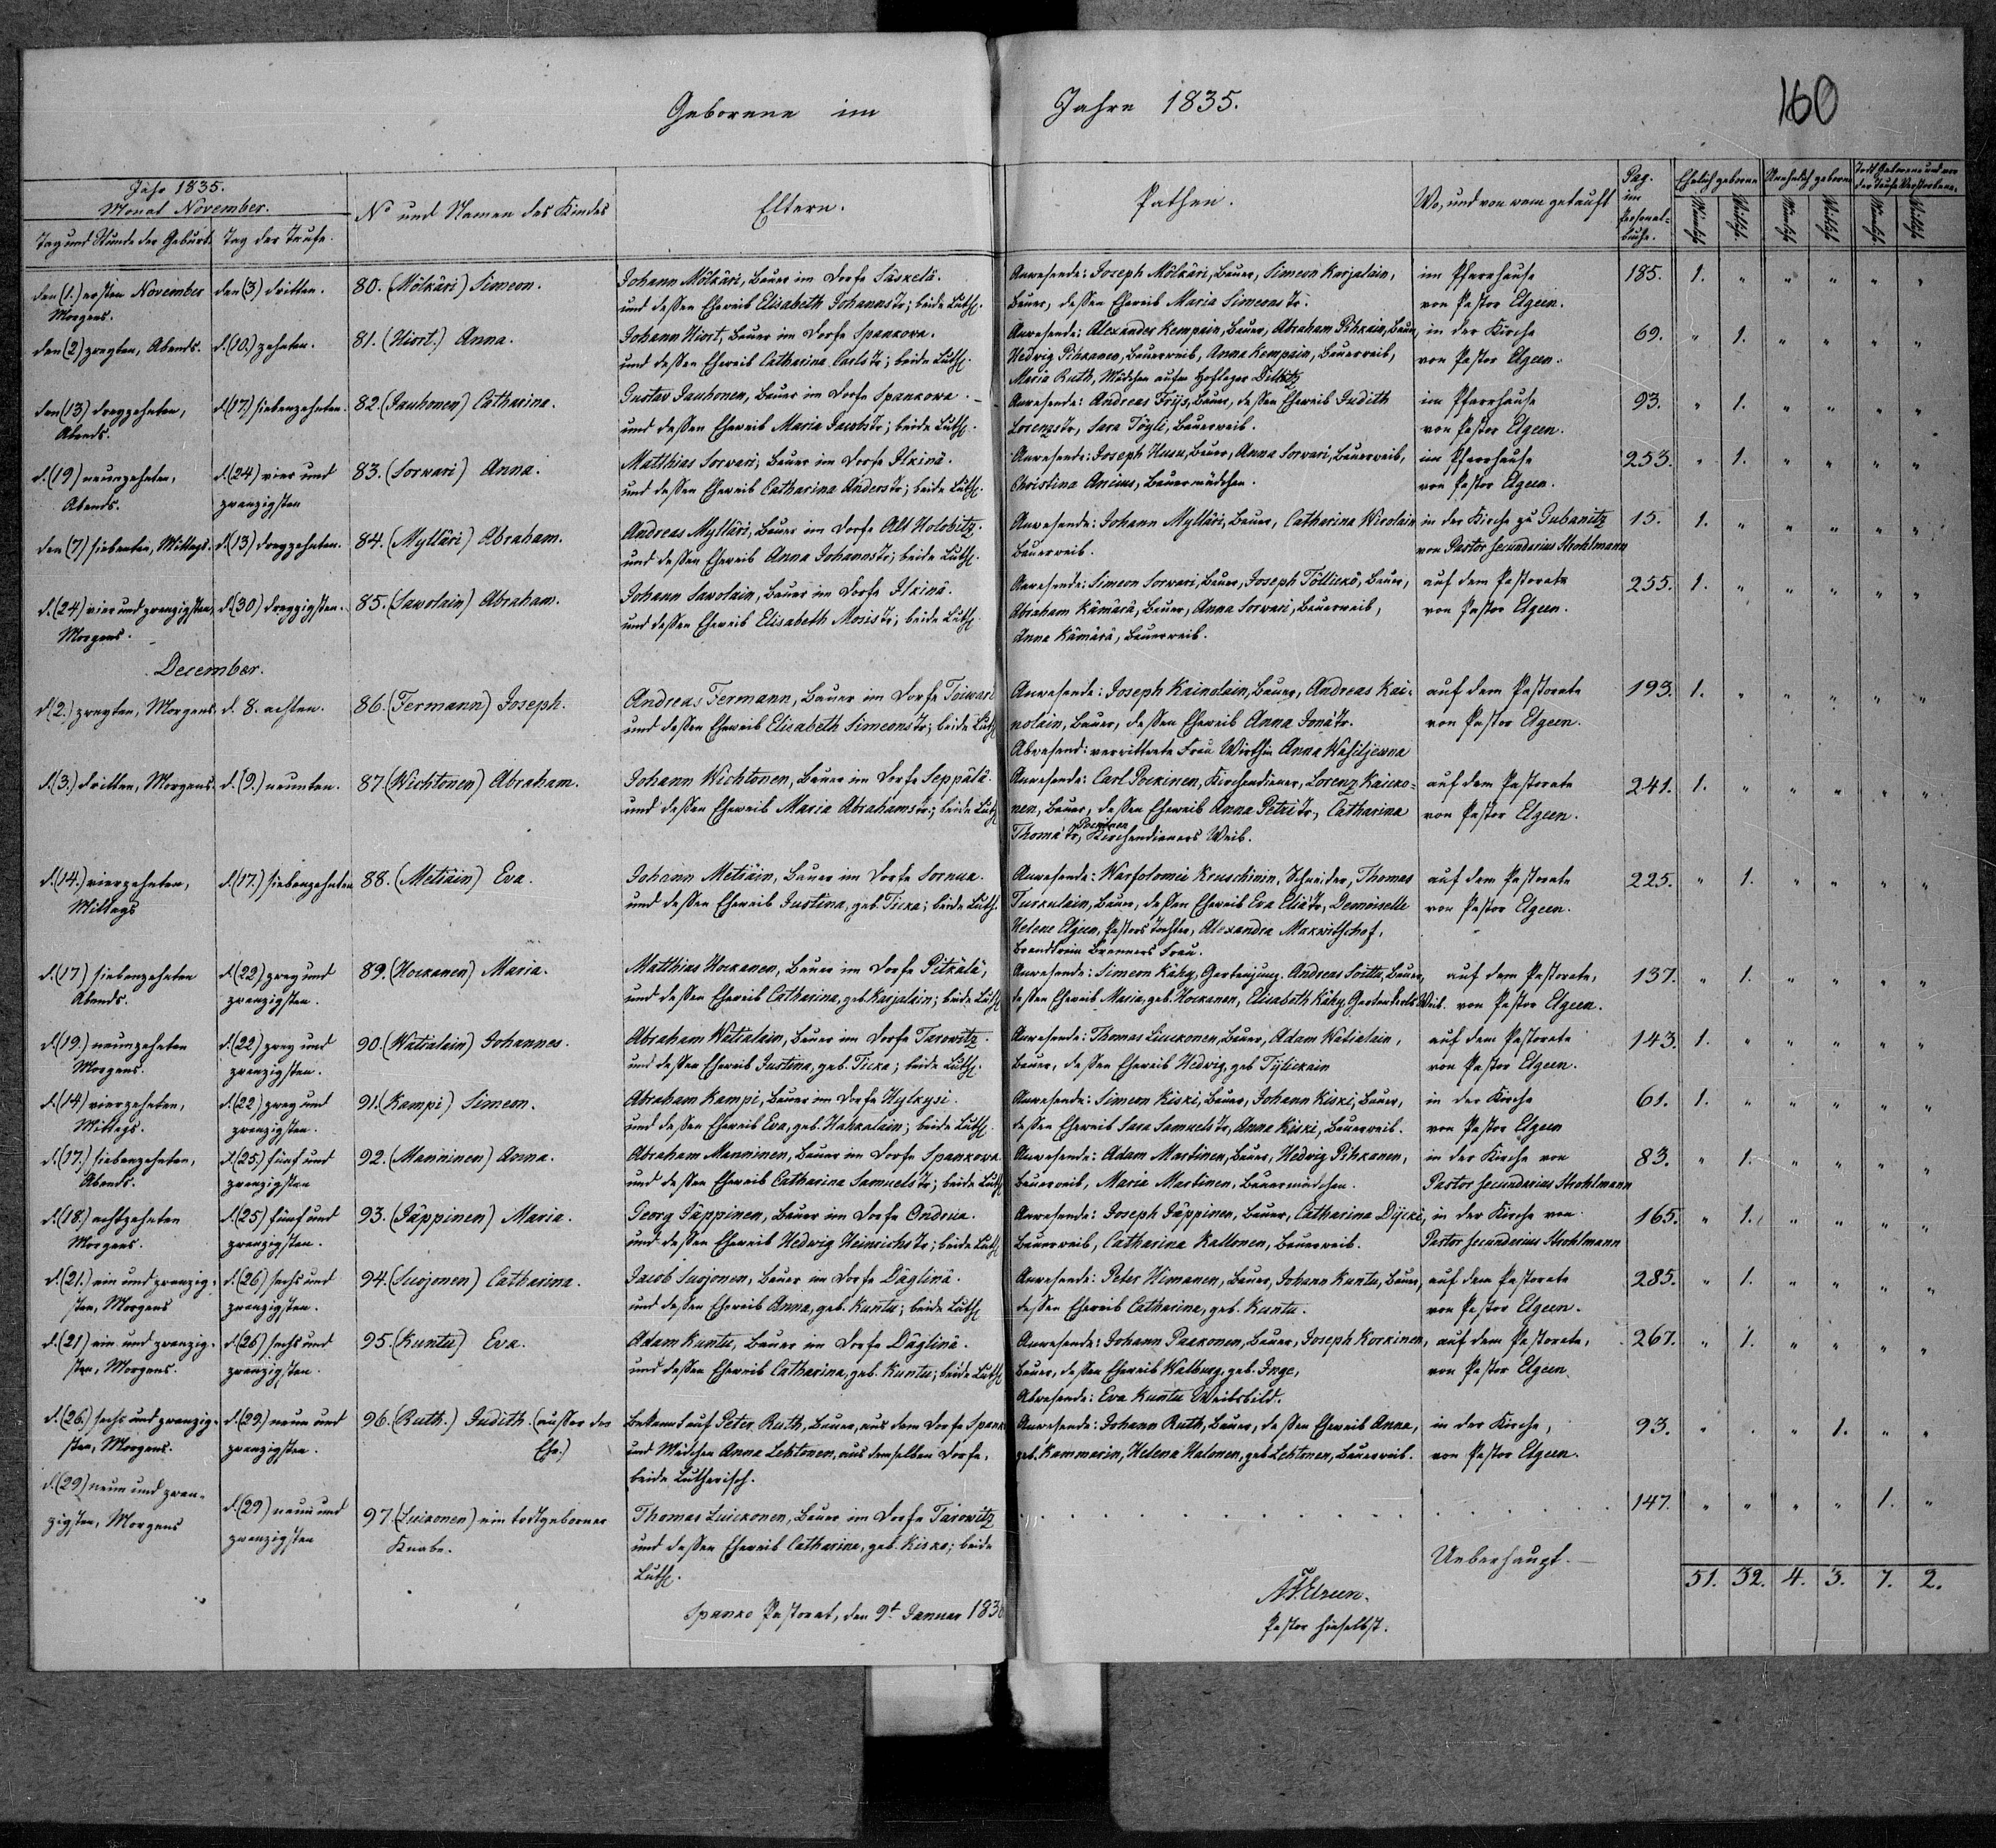 Geborene im Jahre 1835.
160
Jahr 1835.
Monat November.
Tag und Stunde der Geburt.
Tag der Taufe.
No und Namen des Kindes
Eltern.
Pathen.
Wo, und von wem getauft
Pag. im Personal-buche.
Ehelich geborne
Unehelich geborne
Todt Geborene und vor der Taufe Verstorbene.
Männlich
Weiblich
Männlich
Weiblich
Männlich
Weiblich
den (1.) ersten November Morgens.
den (3) dritten.
80. (Mölkäri) Simeon.
Johann Mölkäri, Bauer im Dorfe Säskelä.
und deßen Eheweib Elisabeth Johannstr; beide Luth.
Anwesende: Joseph Mölkäri, Bauer, Simeon Karjalain,
Bauer, deßen Eheweib Maria Simeonstr.
im Pfarrhause
von Pastor Elgeen.
185. 1. " " " " "
den (2) zweyten, Abends.
d. (10.) zehnten.
81. (Hiort.) Anna.
Johann Hiort, Bauer im Dorfe Spankova.
und deßen Eheweib Catharina Carlstr; beide Luth.
Anwesende: Alexander Kempain, Bauer, Abraham Pihkain, Bauer,
Hedwig Pihkanen, Bauerweib, Anna Kempain, Bauerweib,
Maria Ruth, Mädchen aufm Hoflager Dillitz
in der Kirche
von Pastor Elgeen.
69. " 1. " " " "
den (13) dreyzehnten, Abends.
d. (17.) siebenzehnten.
82. (Jauhonen) Catharina.
Gustav Jauhonen, Bauer im Dorfe Spankova.
und deßen Eheweib Maria Jacobstr; beide Luth.
Anwesende: Andreas Frijs, Bauer, deßen Eheweib Judith
Lorenzstr, Sara Töyli, Bauerweib.
im Pfarrhause
von Pastor Elgeen.
93. " 1. " " " "
d. (19) neunzehnten, Abends.
d. (24) vier und zwanzigsten
83. (Sorvari) Anna.
Matthias Sorvari, Bauer im Dorfe Ilkinä.
und deßen Eheweib Catharina Anderstr; beide Luth.
Anwesende: Joseph Husu, Bauer, Anna Sorvari, Bauerweib,
Christina Ancius, Bauermädchen.
im Pfarrhause
von Pastor Elgeen.
253. " 1. " " " "
den (7) siebenten, Mittags.
d. (13) dreyzehnten.
84. (Mylläri) Abraham.
Andreas Mylläri, Bauer im Dorfe Alt Holobitz.
und deßen Eheweib Anna Johannstr; beide Luth.
Anwesende: Johann Mylläri, Bauer, Catharina Wirolain
Bauerweib.
in der Kirche zu Gubanitz
von Pastor Secundarius Strohlmann
15. 1. " " " " "
d. (24) vier und zwanzigsten, Morgens.
d. (30) dreyzigsten.
85. (Sawolain) Abraham.
Johann Sawolain, Bauer im Dorfe Ilkinä.
und deßen Eheweib Elisabeth Mosistr; beide Luth.
Anwesende: Simeon Sorvari, Bauer, Joseph Töllickö, Bauer,
Abraham Kämärä, Bauer, Anna Sorvari, Bauerweib,
Anna Kämärä, Bauerweib.
auf dem Pastorate
von Pastor Elgeen.
255. 1. " " " " "
December.
d. (2.) zweyten, Morgens
d. 8. achten.
86. (Fermann) Joseph.
Andreas Fermann, Bauer im Dorfe Toiwari
und deßen Eheweib Elisabeth Simeonstr; beide Luth.
Anwesende: Joseph Kainolain, Bauer, Andreas Kai-
nolain, Bauer, deßen Eheweib Anna Jonätr.
Abwesend: verwittwete Frau Wirthin Anna Wasiljewna
auf dem Pastorate
von Pastor Elgeen.
193. 1. " " " " "
d. (3.) dritten, Morgens.
d. (9.) neunten.
87. (Wichtonen) Abraham.
Johann Wichtonen, Bauer im Dorfe Seppälä
und deßen Eheweib Maria Abrahamstr; beide Luth
Anwesende: Carl Pockinen, Kirchendiener, Lorenz Kaicko-
nen, Bauer, deßen Eheweib Anna Petritr, Catharina
Thomätr, Pockinen Kirchendieners Weib.
auf dem Pastorate
von Pastor Elgeen.
241. 1. " " " " "
d. (14.) vierzehnten, Mittags
d. (17.) siebenzehnten
88. (Metiäin) Eva.
Johann Metiäin, Bauer im Dorfe Sornua.
und deßen Eheweib Justina, geb. Ticka; beide Luth.
Anwesende: Warfolomei Kruschinin, Schneider, Thomas
Turkulain, Bauer, deßen Eheweib Eva Eliätr, Demoiselle
Helene Elgeen, Pastors Tochter, Alexandra Markwitschof,
Brandtwein Brenners Frau.
auf dem Pastorate
von Pastor Elgeen.
225. " 1. " " " "
d. (17) siebenzehnten Abends.
d. (22) zwey und zwanzigsten.
89. (Hockanen) Maria.
Matthias Hockanen, Bauer im Dorfe Pitkälä,
und deßen Eheweib Catharina, geb. Karjalain; beide Luth
Anwesende: Simeon Kähy, Gartenjung, Andreas Soittu, Bauer,
deßen Eheweib Maria, geb. Hockanen, Elisabeth Kähy, Gartenkerls Weib.
auf dem Pastorate,
von Pastor Elgeen.
137. " 1. " " " "
d. (19.) neunzehnten Morgens.
d. (22) zwey und zwanzigsten.
90. (Watialain) Johannes.
Abraham Watialain, Bauer im Dorfe Tarowitz.
und deßen Eheweib Justina, geb. Ticka; beide Luth.
Anwesende: Thomas Luickonen, Bauer, Adam Watialain,
Bauer, deßen Eheweib Hedwig, geb. Tylickain
auf dem Pastorate
von Pastor Elgeen.
143. 1. " " " " "
d. (14) vierzehnten, Mittags.
d. (22) zwey und zwanzigsten.
91. (Kampi) Simeon.
Abraham Kampi, Bauer im Dorfe Hylkysi.
und deßen Eheweib Eva, geb. Hakkalain; beide Luth.
Anwesende: Simeon Kiski, Bauer, Johann Kiski, Bauer,
deßen Eheweib Sara Samuelstr, Anna Kiski, Bauerweib.
in der Kirche
von Pastor Elgeen
61. 1. " " " " "
d. (17.) siebenzehnten, Abends.
d. (25.) fünf und zwanzigsten
92. (Manninen) Anna.
Abraham Manninen, Bauer im Dorfe Spankova
und deßen Eheweib Catharina Samuelstr; beide Luth
Anwesende: Adam Martinen, Bauer, Hedwig Pihkanen,
Bauerweib, Maria Martinen, Bauermädchen.
in der Kirche von
Pastor Secundarius Strohlmann
83. " 1. " " " "
d. (18.) achtzehnten Morgens.
d. (25) fünf und zwanzigsten.
93. (Jäppinen) Maria.
Georg Jäppinen, Bauer im Dorfe Ondrua.
und deßen Eheweib Hedwig Heinrichstr; beide Luth
Anwesende: Joseph Jäppinen, Bauer, Catharina Dijcki,
Bauerweib, Catharina Kallonen, Bauerweib.
in der Kirche von
Pastor Secundarius Strohlmann
165. " 1. " " " "
d. (21.) ein und zwanzig-sten, Morgens
d. (26) sechs und zwanzigsten.
94. (Susjonen) Catharina.
Jacob Susjonen, Bauer im Dorfe Däglinä.
und deßen Eheweib Anna, geb. Kuntu; beide Luth
Anwesende: Peter Himanen, Bauer, Johann Kuntu, Bauer,
deßen Eheweib Catharina, geb. Kuntu.
auf dem Pastorate
von Pastor Elgeen.
285. " 1. " " " "
d. (21) ein und zwanzig-sten, Morgens.
d. (26) sechs und zwanzigsten.
95. (Kuntu) Eva.
Adam Kuntu, Bauer im Dorfe Däglinä.
und deßen Eheweib Catharina, geb. Kuntu; beide Luth
Anwesende: Johann Paakonen, Bauer, Joseph Korkinen,
Bauer, deßen Eheweib Walburg, geb. Inge,
Abwesende: Eva Kuntu Weibsbild.
auf dem Pastorate,
von Pastor Elgeen.
267. " 1. " " " "
d. (26.) sechs und zwanzig-sten, Morgens.
d. (29.) neun und zwanzigsten.
96. (Ruth.) Judith. (außer der Ehe.)
Bekannt auf Peter Ruth, Bauer, aus dem Dorfe Spanko
und Mädchen Anna Lehtonen, aus demselben Dorfe,
beide Lutherisch.
Anwesende: Johann Ruth, Bauer, deßen Eheweib Anna,
geb. Kammarin, Helena Halonen, geb. Lehtonen, Bauerweib.
in der Kirche,
von Pastor Elgeen.
93. " . " 1. " "
d. (29) neun und zwan-zigsten, Morgens
d. (29) neun und zwanzigsten
97. (Luikonen) ein todtgeborner Knabe.
Thomas Luickonen, Bauer im Dorfe Tarowitz
und deßen Eheweib Catharina, geb. Kiska; beide
Luth.
147. " " " " 1. "
Ueberhaupt.
51. 32. 4. 3. 7. 2.
Spanko Pastorat, den 9t Januar 1836
Elgeen.
Pastor hieselbst.